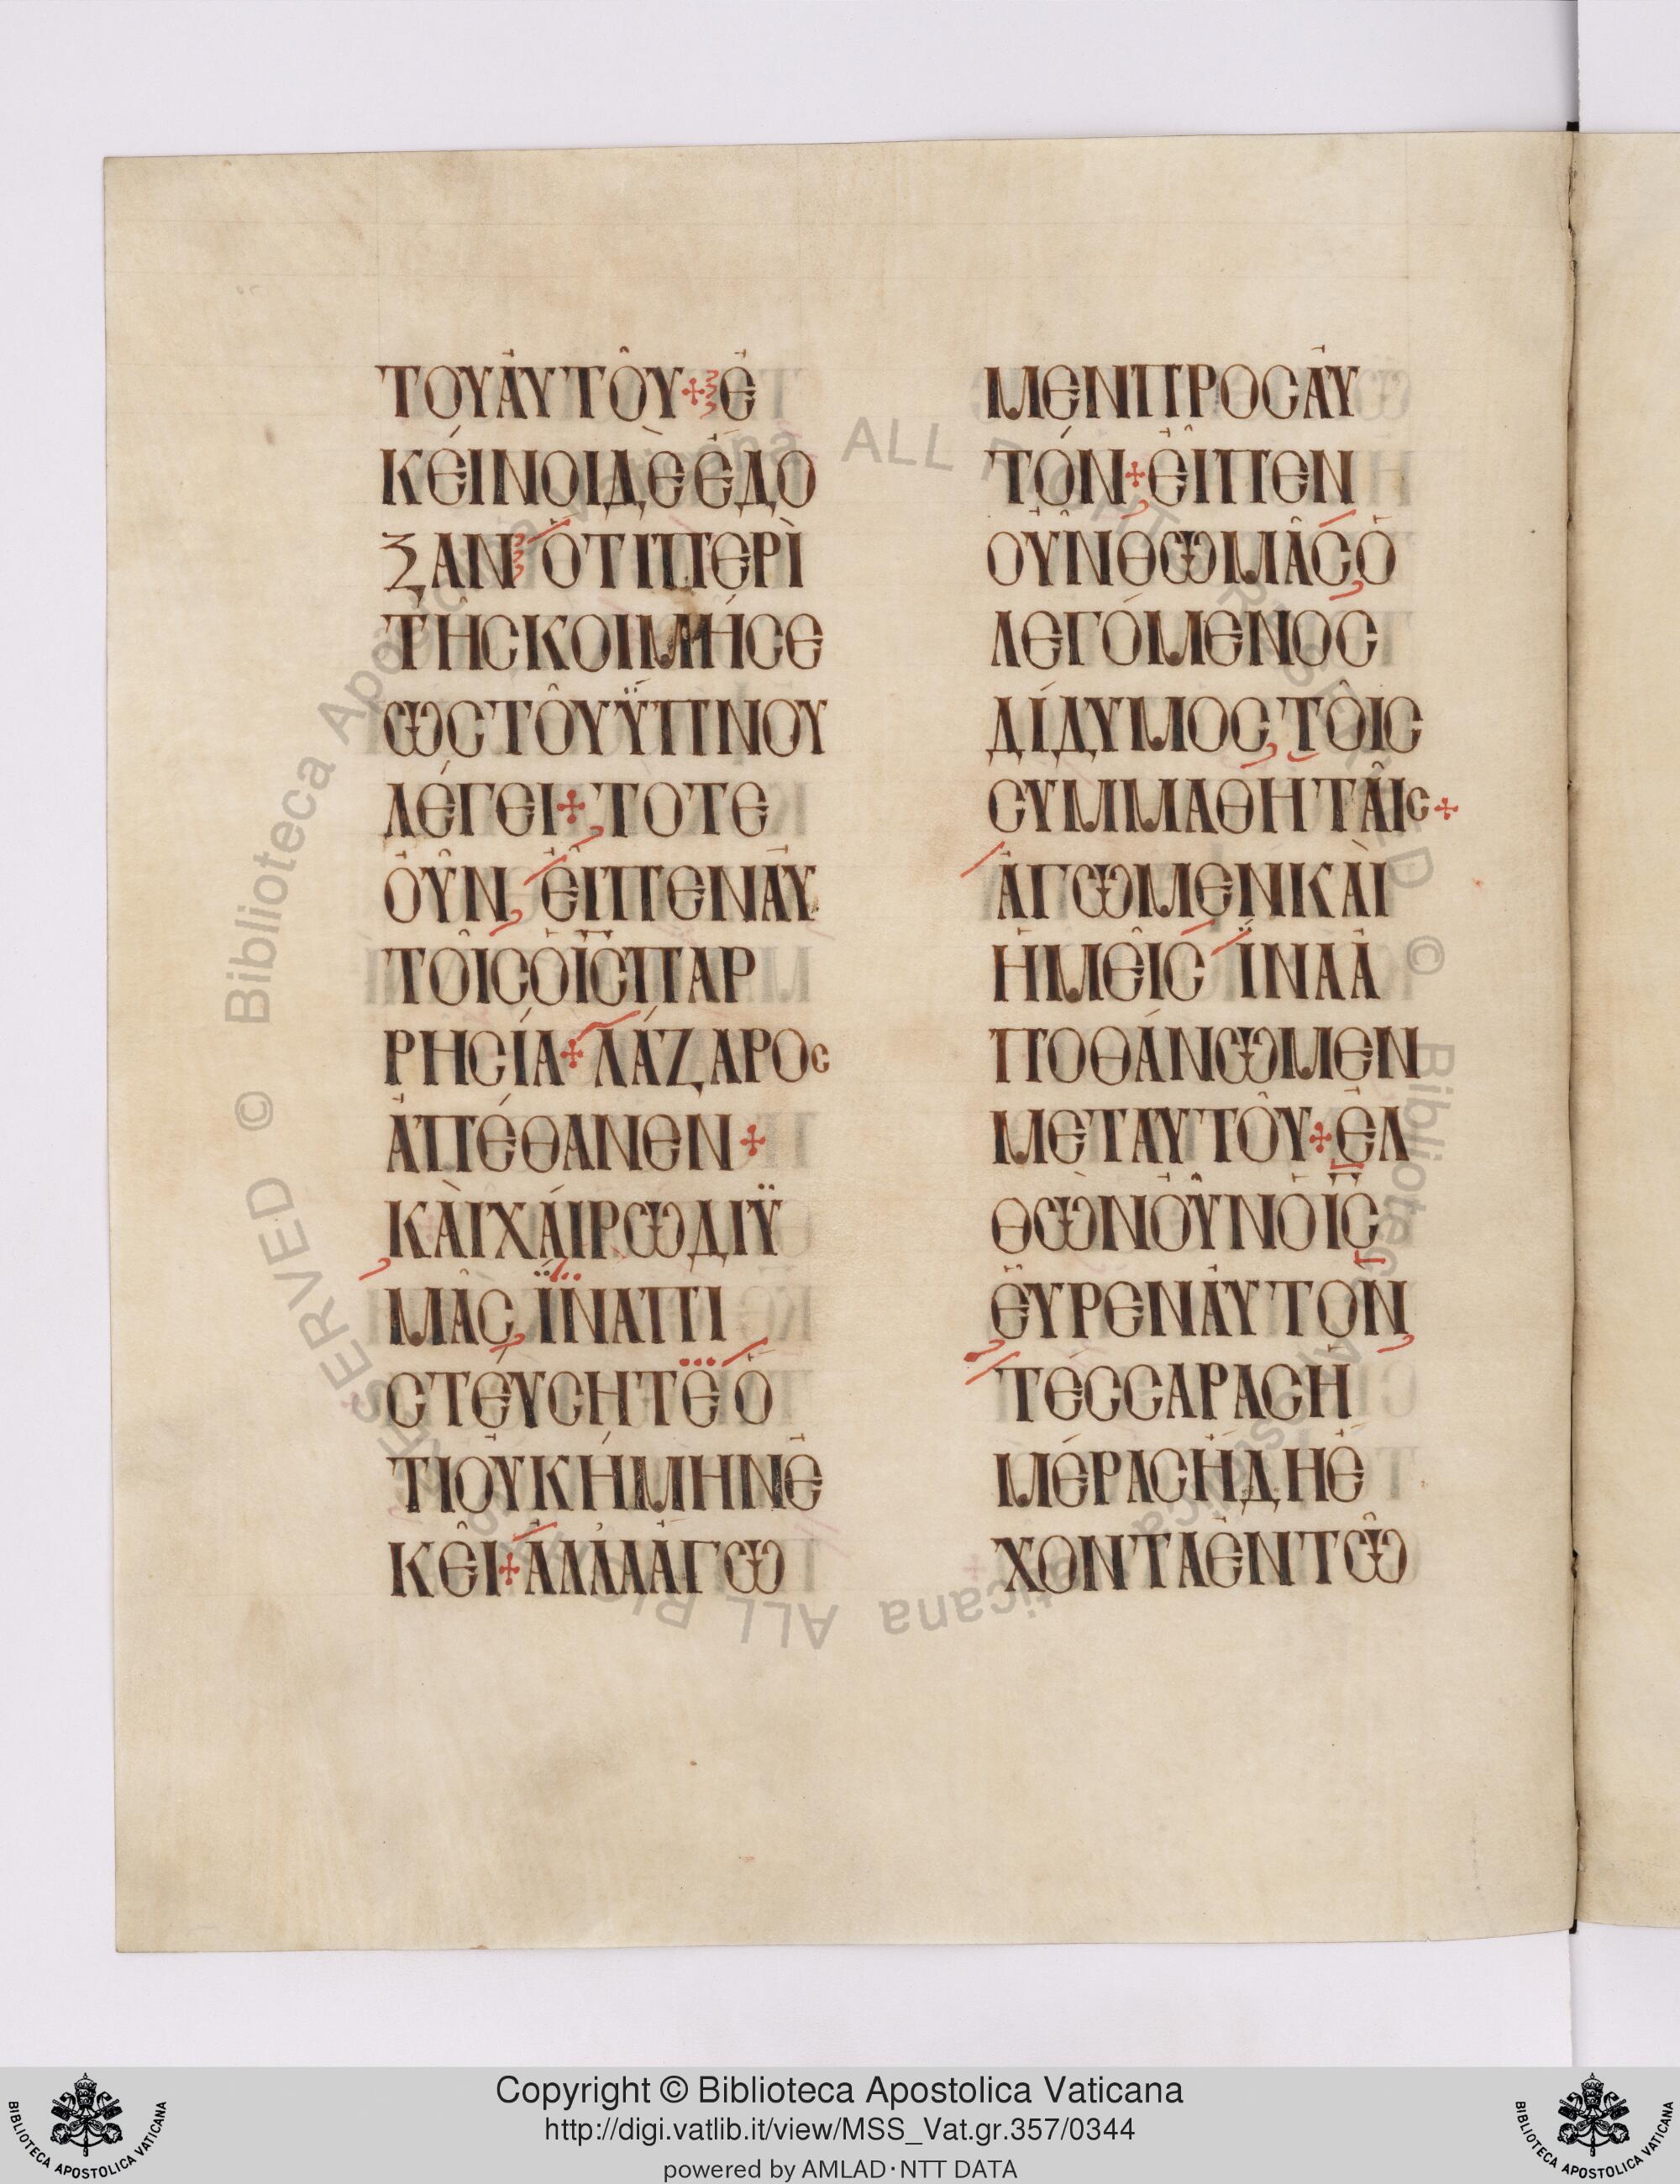 ΤΟΥἈΥΤΟ͂Υ✣Ἐ
ΚΈΙΝΟΙΔῈἘΔΟ
ΞΑΝὍΤΙΠΕΡῚ
ΤΗ͂ϹΚΟΙΜΉϹΕ
ΩϹΤΟ͂ΥΫ́ΠΝΟΥ
ΛΈΓΕΙ✣ΤΟΤΕ
ὈΥ͂Ν,ἘΙ͂ΠΕΝἈΥ
ΤΟ͂ΙϹὉΙ̅Ϲ̅ΠΑΡ
ΡΗϹΊΑ✣ΛΆΖΑΡΟϹ
ἈΠΈΘΑΝΕΝ✣
ΚᾺΙΧΆΙΡΩΔΙΫ
ΜΑ͂Ϲ,ΪΝΑΠΙ
ϹΤΈΥϹΗΤΕὍ
ΤΙὈΥΚΉΜΗΝἘ
ΚΕ͂Ι✣ἈΛΛἈΓΩ
ΜΕΝΠΡΟϹἈΥ
ΤΌΝ✣ἘΙ͂ΠΕΝ
ὈΥ͂ΝΘΩΜΑ͂Ϲ,Ὁ
ΛΕΓΌΜΕΝΟϹ
ΔΊΔΥΜΟϹ,ΤΟ͂ΙϹ
ϹΥΜΜΑΘΗΤΑ͂ΙϹ✣
ἌΓΩΜΕΝΚᾺΙ
ἩΜΕ͂ΙϹΪΝΑἈ
ΠΟΘΆΝΩΜΕΝ
ΜΕΤΑΥΤΟ͂Υ✣ἘΛ
ΘῺΝὈΥ͂ΝὉΙ̅Ϲ̅
ἙΥ͂ΡΕΝἈΥΤΟΝ,
ΤΈϹϹΑΡΑϹἩ
ΜΈΡΑϹἬΔΗἜ
ΧΟΝΤΑἘΝΤΩ͂
© Biblioteca Apostolica Vaticana ALL RIGHTS RESERVED
Copyright © Biblioteca Apostolica Vaticana
http://digi.vatlib.it/view/MSS_Vat.gr.357/0344
powered by AMLAD·NTT DATA
BIBLIOTECA APOSTOLICA VATICANA
BIBLIOTECA APOSTOLICA VATICANA